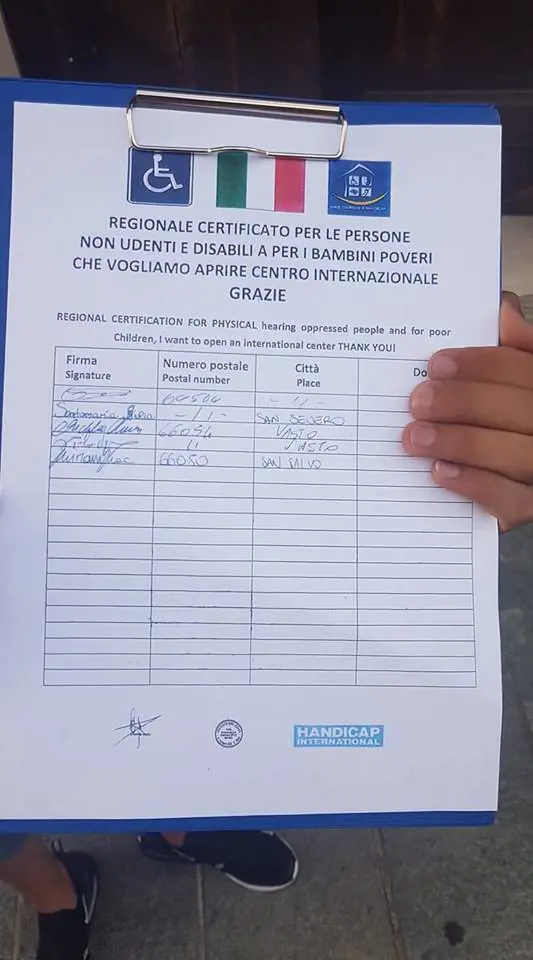 REGIONALE CERTIFICATO PER LE PERSONE
NON UDENTI E DISABILI A PER I BAMBINI POVERI
CHE VOGLIAMO APRIRE CENTRO INTERNAZIONALE
GRAZIE
REGIONAL CERTIFICATION FOR PHYSICAL hearing oppressed people and for poor
Children, I want to open an international center THANK YOU!
Firma Numero postale Città Do
Signature Postal number Place
- 11 -
- 11 - SAN SEVERO
66054 VASTO
11 VASTO
66050 SAN SALVO
HANDICAP
INTERNATIONAL